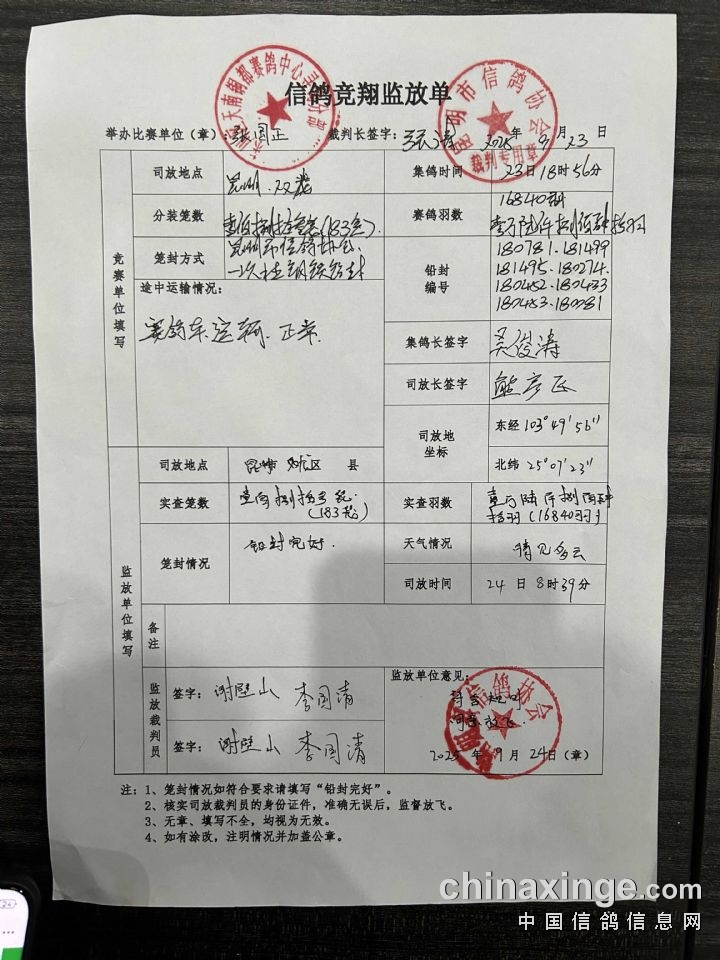 信鸽竞翔监放单
举办比赛单位（章）： 裁判长签字： 2025 年 9 月 23 日
竞赛单位填写
司放地点
集鸽时间 23日18时56分
分装笼数 (183笼)
赛鸽羽数 16840羽
笼封方式 昆明市信鸽协会
一次性钢铁铅封
铅封编号 180781.181499
181495.180274.
180452.180433
180453.180081
途中运输情况：
赛鸽车运输.正常.
集鸽长签字 吴俊涛
司放长签字 熊彦飞
司放地坐标
东经 103°49'56"
北纬 25°07'23"
监放单位填写
司放地点 区 县
实查笼数 (183笼)
实查羽数 (16840羽)
笼封情况 铅封完好.
天气情况 晴见多云
司放时间 24 日 8 时 39 分
备注
监放裁判员
签字： 李国清
签字： 李国清
监放单位意见：
同意放飞
2025 年 9 月 24日（章）
注：1、笼封情况如符合要求请填写“铅封完好”。
2、核实司放裁判员的身份证件，准确无误后，监督放飞。
3、无章、填写不全，均视为无效。
4、如有涂改，注明情况并加盖公章。
昆明市信鸽协会
裁判专用章
chinaxinge.com
中国信鸽信息网